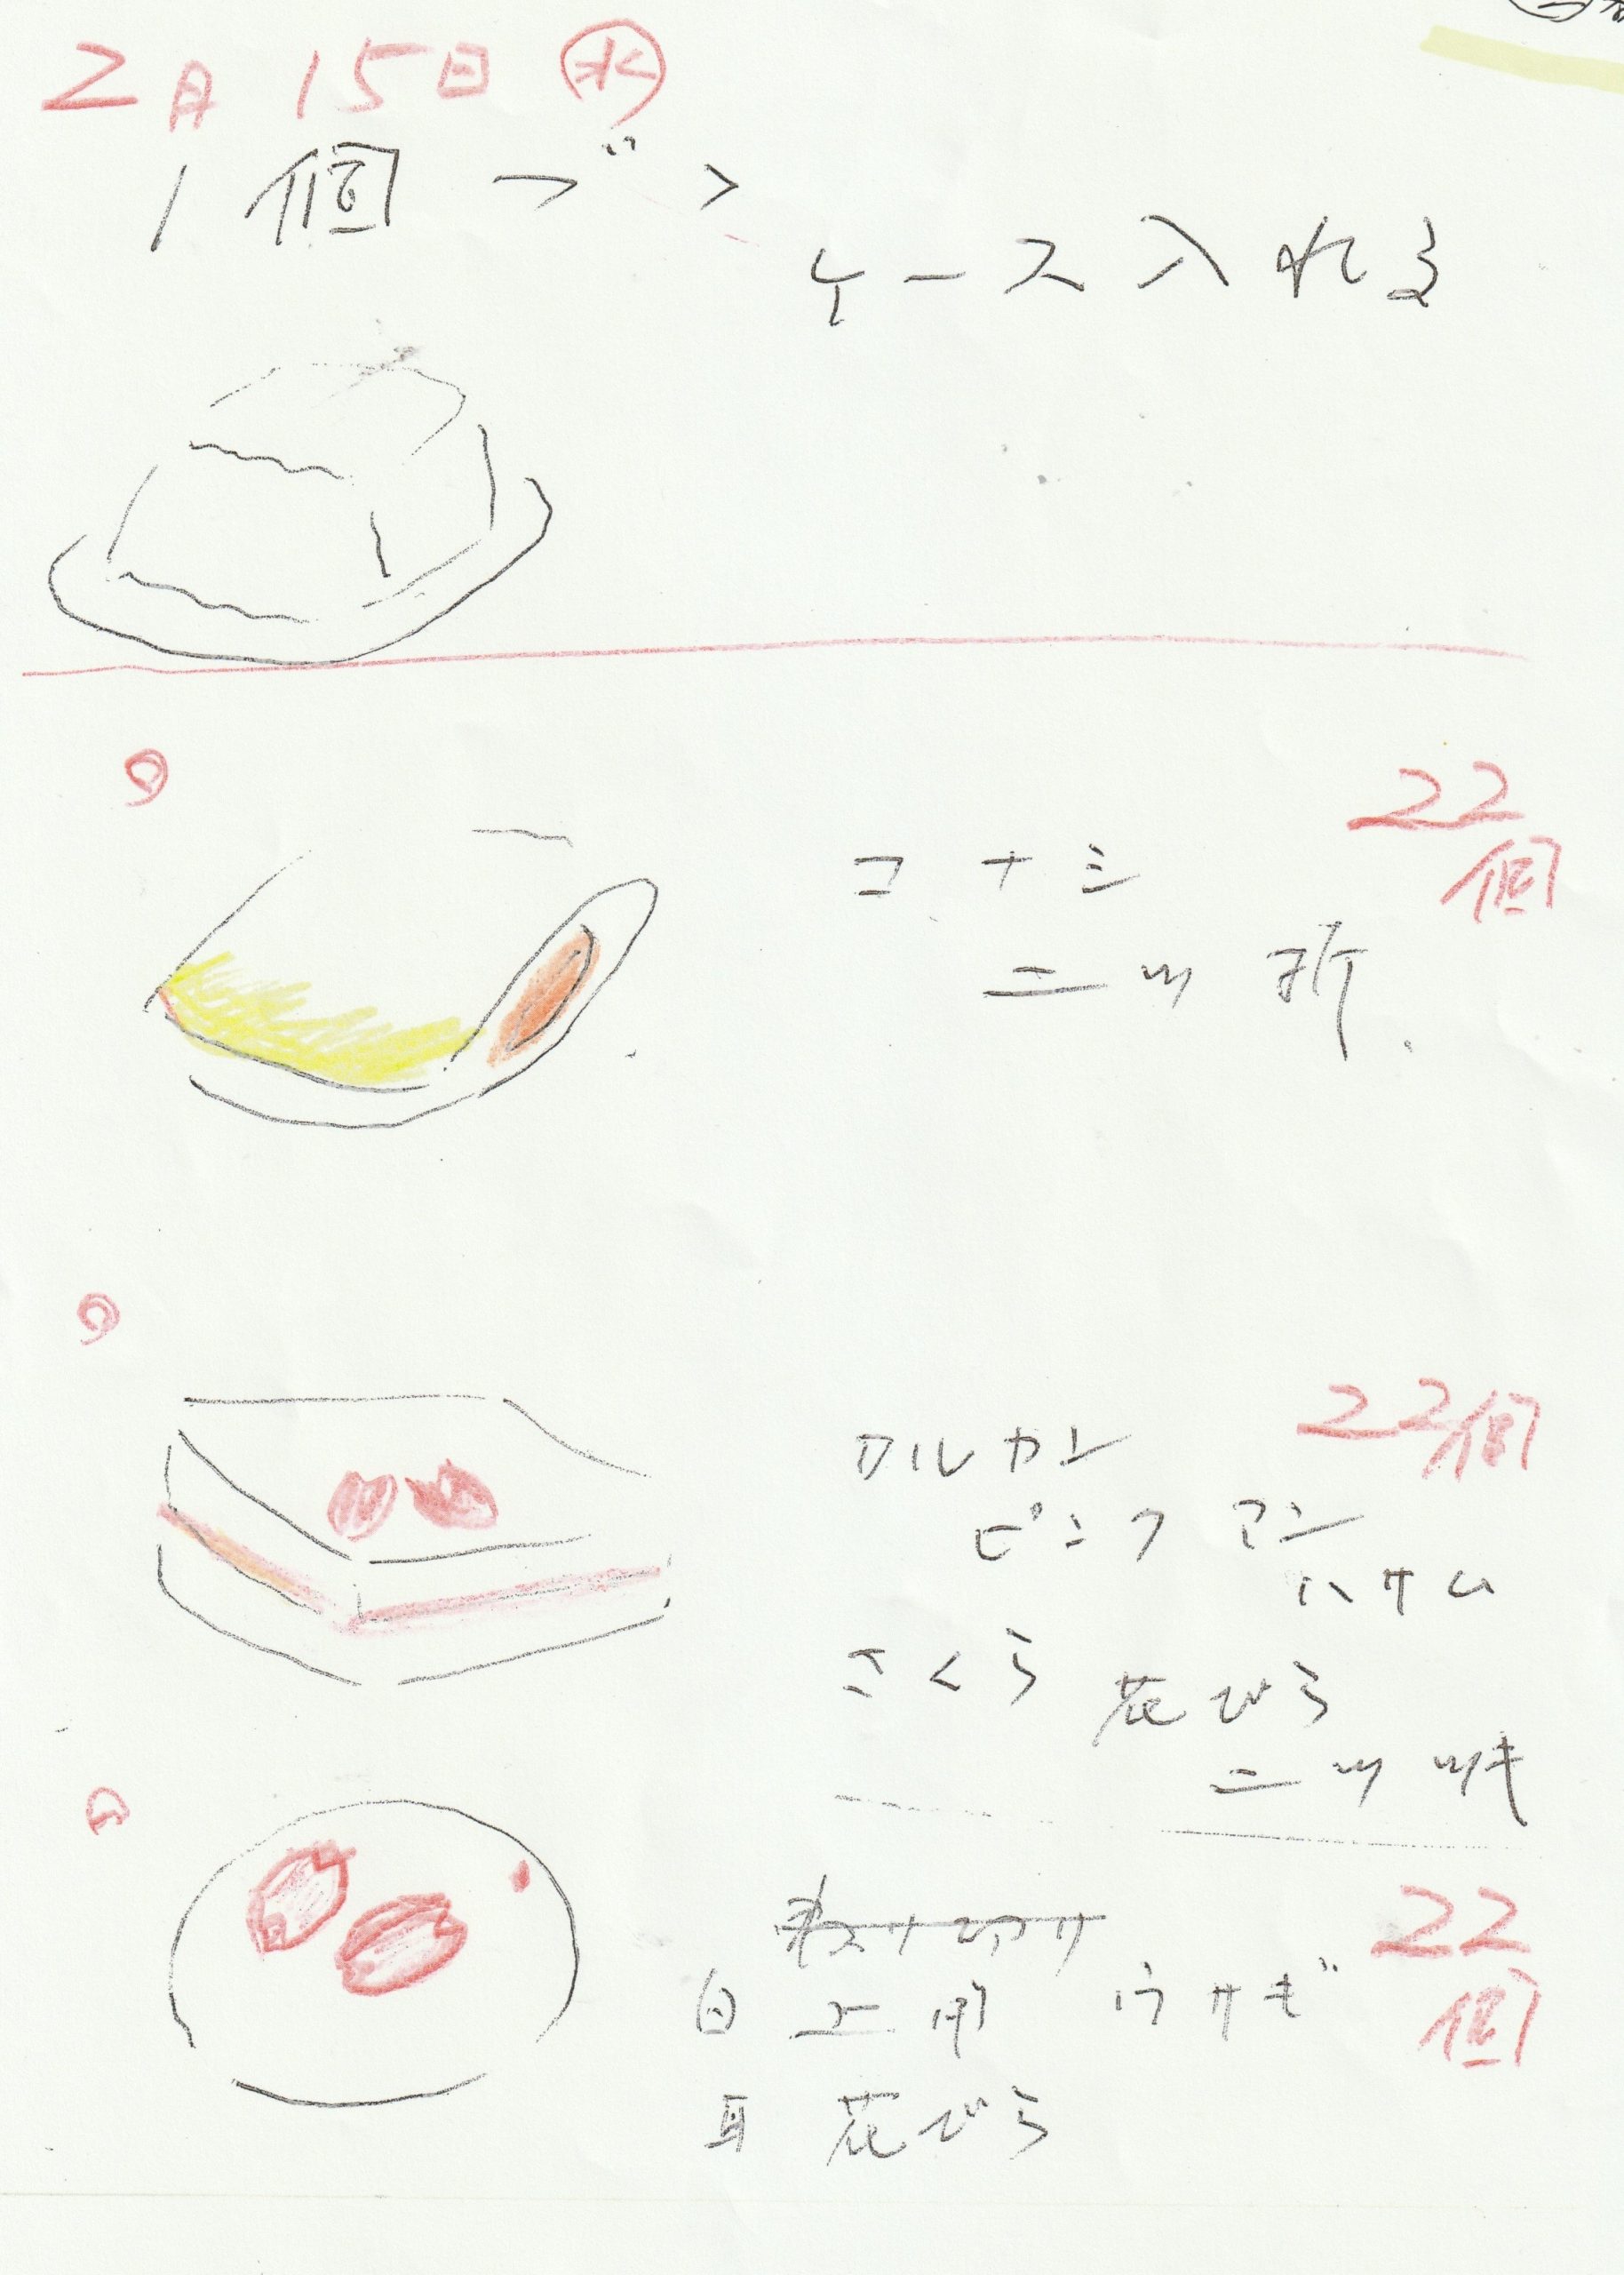 2月15日 ㊌
1個づつ
ケース入れる
22
個
コナシ
二ツ折
22個
カルカン
ピンクアン
ハサム
さくら 花びら
二ツ ツキ
22
個
白 ウサギ
耳 花びら